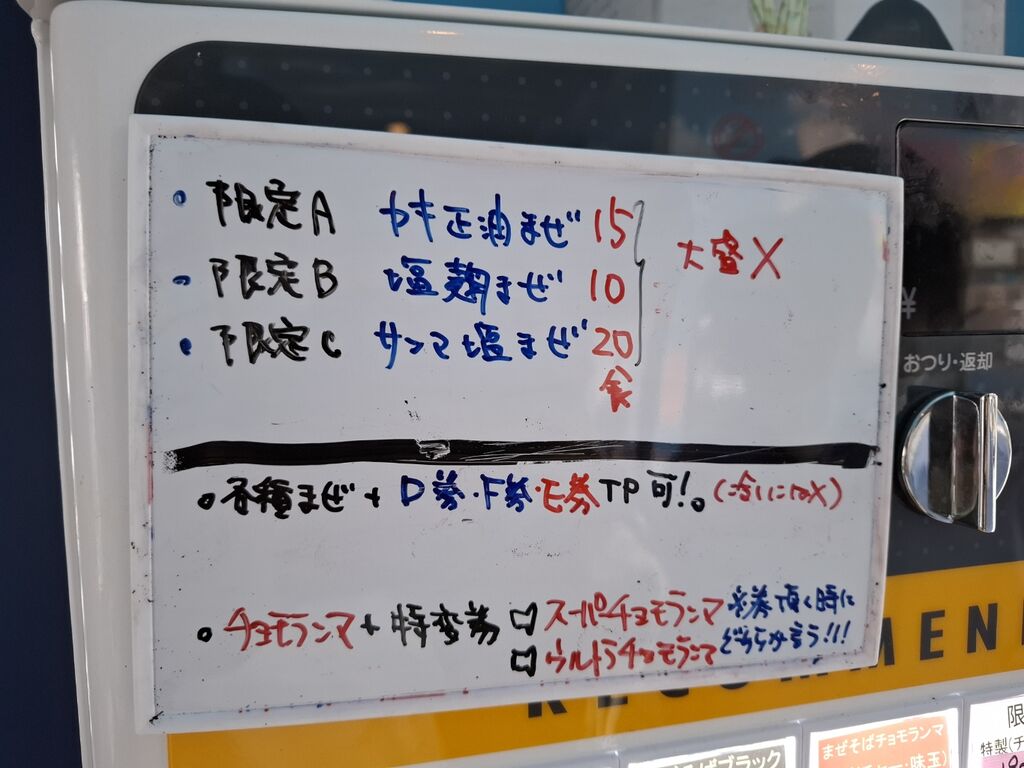 ・限定A カキ正油まぜ 15
・限定B 塩麹まぜ 10
・限定C サンマ塩まぜ 20
食
大盛X
¥
おつり・返却
・各種まぜ+D券・F券・E券TP可!。
・チョモランマ+特変券 □スーパーチョモランマ
□ウルトラチョモランマ
※券頂く時に
どちらか言う!!!
RECOMMEN
そばブラック
まぜそばチョモランマ
味玉)
限
特製(チ